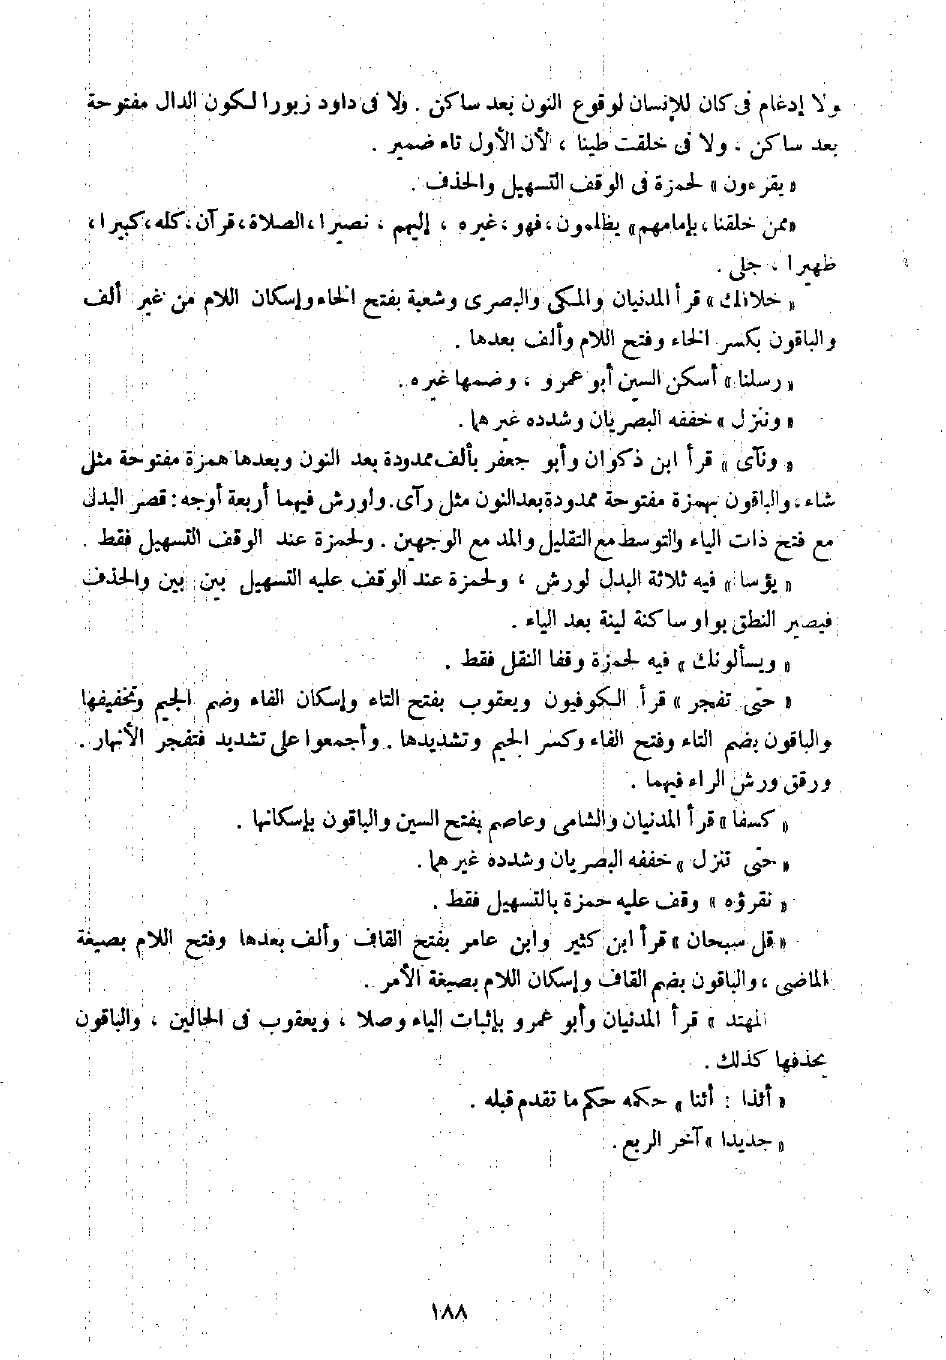 ولا إدغام فى كان للإنسان لوقوع النون بعد ساكن . ولا فى داود زبورا لكون الدال مفتوحة
بعد ساكن . ولا فى خلقت طينا ، لأن الأول تاء ضمير .
« يقرءون » لحمزة فى الوقف التسهيل والحذف .
«ممن خلقنا ، بإمامهم» يظلمون ، فهو ، غيره ، إليهم ، نصيرا ، الصلاة ، قرآن ، كله ، كبيرا ،
ظهيرا ، جلى .
« خلافك » قرأ المدنيان والمكى والبصرى وشعبة بفتح الخاء وإسكان اللام من غير ألف
والباقون بكسر الخاء وفتح اللام وألف بعدها .
« رسلنا » أسكن السين أبو عمرو ، وضمها غيره .
« وننزل » خففه البصريان وشدده غيرهما .
« ونآى » قرأ ابن ذكوان وأبو جعفر بألف ممدودة بعد النون وبعدها همزة مفتوحة مثل
شاء ، والباقون بهمزة مفتوحة ممدودة بعد النون مثل رآى . ولورش فيهما أربعة أوجه : قصر البدل
مع فتح ذات الياء والتوسط مع التقليل والمد مع الوجهين . ولحمزة عند الوقف التسهيل فقط .
« يؤسا » فيه ثلاثة البدل لورش ، ولحمزة عند الوقف عليه التسهيل بين بين والحذف
فيصير النطق بواو ساكنة لينة بعد الياء .
« ويسألونك » فيه لحمزة وقفا النقل فقط .
« حتى تفجر » قرأ الكوفيون ويعقوب بفتح التاء وإسكان الفاء وضم الجيم وتخفيفها
والباقون بضم التاء وفتح الفاء وكسر الجيم وتشديدها . وأجمعوا على تشديد فتفجر الأنهار .
ورقق ورش الراء فيهما .
« كسفا » قرأ المدنيان والشامى وعاصم بفتح السين والباقون بإسكانها .
« حتى تنزل » خففه البصريان وشدده غيرهما .
« نقرؤه » وقف عليه حمزة بالتسهيل فقط .
« قل سبحان » قرأ ابن كثير وابن عامر بفتح القاف وألف بعدها وفتح اللام بصيغة
الماضى ، والباقون بضم القاف وإسكان اللام بصيغة الأمر .
المهتد » قرأ المدنيان وأبو عمرو بإثبات الياء وصلا ، ويعقوب فى الحالين ، والباقون
بحذفها كذلك .
« أئذا : أئنا » حكمه حكم ما تقدم قبله .
« جديدا » آخر الربع .
١٨٨